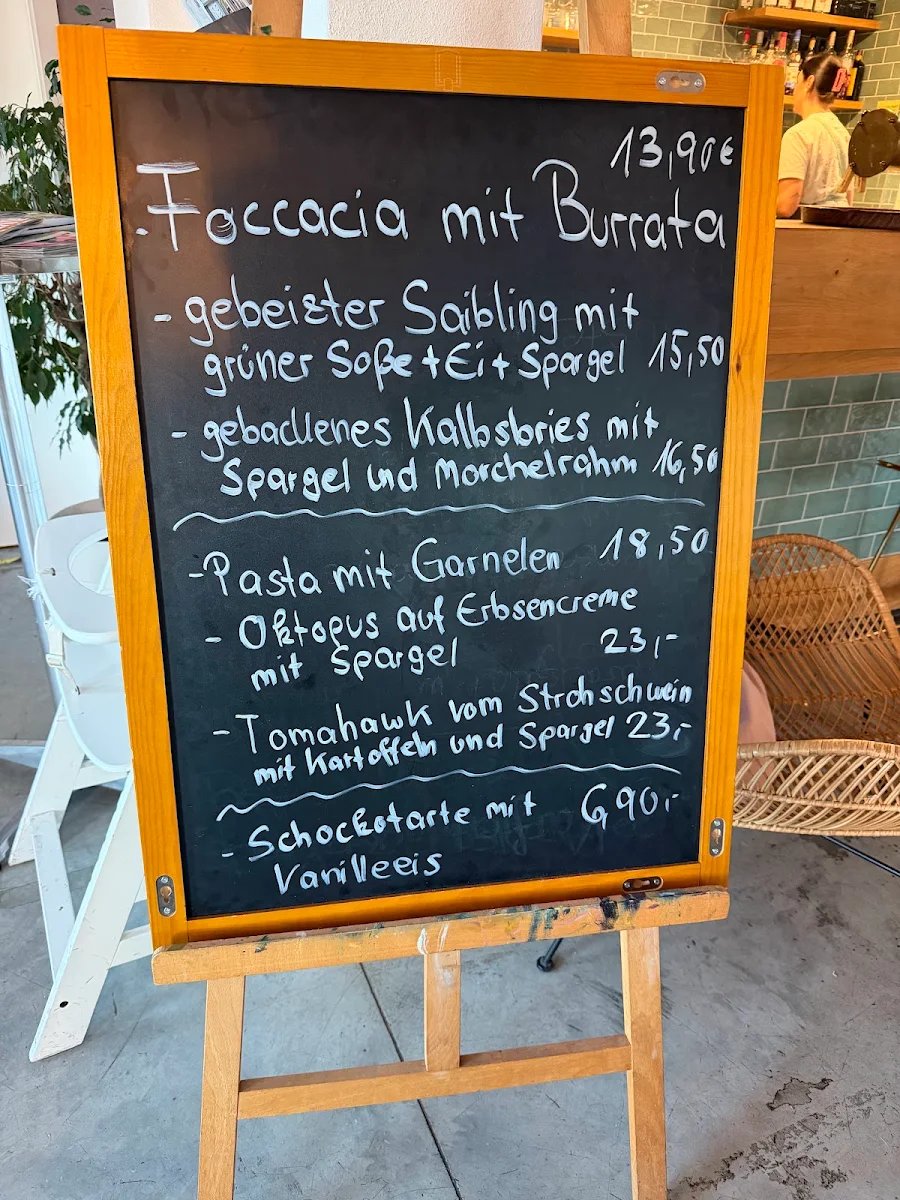 13,90€
- Foccacia mit Burrata
- gebeizter Saibling mit
grüner Soße + Ei + Spargel 15,50
- gebackenes Kalbsbries mit
Spargel und Morchelrahm 16,50
- Pasta mit Garnelen 18,50
- Oktopus auf Erbsencreme
mit Spargel 23,-
- Tomahawk vom Strohschwein
mit Kartoffeln und Spargel 23,-
- Schockotarte mit 6,90,-
Vanilleeis